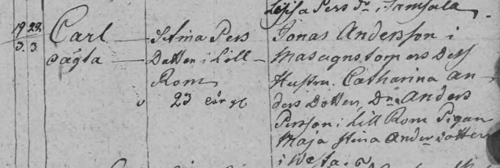 Pers Dr i Samsala
19 28 Carl Stina Pers Jonas Andersson i
3.3 oägta Dotter i Lill Masugnstorp ers Dess
Rom Hustru Catharina An
23 år gl ders Dotter, Dr Anders
Persson i Lill Rom Pigan
Maja Stina Anders dotter
i